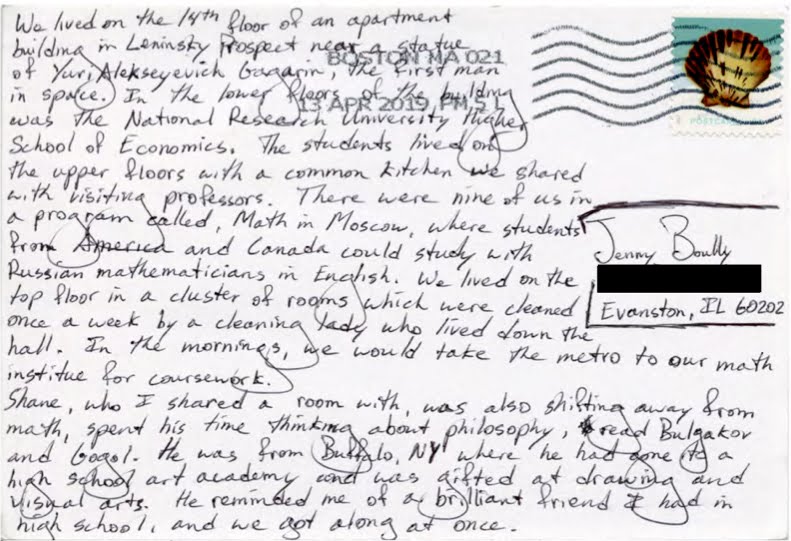 We lived on the 14th floor of an apartment
building in Leninsky Prospect near a statue
of Yuri Alekseyevich Gagarin, the first man
in space. In the lower floors of the building
was the National Research University Higher
School of Economics. The students lived on
the upper floors with a common kitchen we shared
with visiting professors. There were nine of us in
a program called, Math in Moscow, where students
from America and Canada could study with
Russian mathematicians in English. We lived on the
top floor in a cluster of rooms which were cleaned
once a week by a cleaning lady who lived down the
hall. In the mornings, we would take the metro to our math
institue for coursework.
Shane, who I shared a room with, was also shifting away from
math, spent his time thinking about philosophy, read Bulgakov
and Gogol. He was from Buffalo, NY where he had gone to a
high school art academy and was gifted at drawing and
visual arts. He reminded me of a brilliant friend I had in
high school, and we got along at once.
BOSTON MA 021
13 APR 2019 PM 5 L
Jenny Boully
Evanston, IL 60202